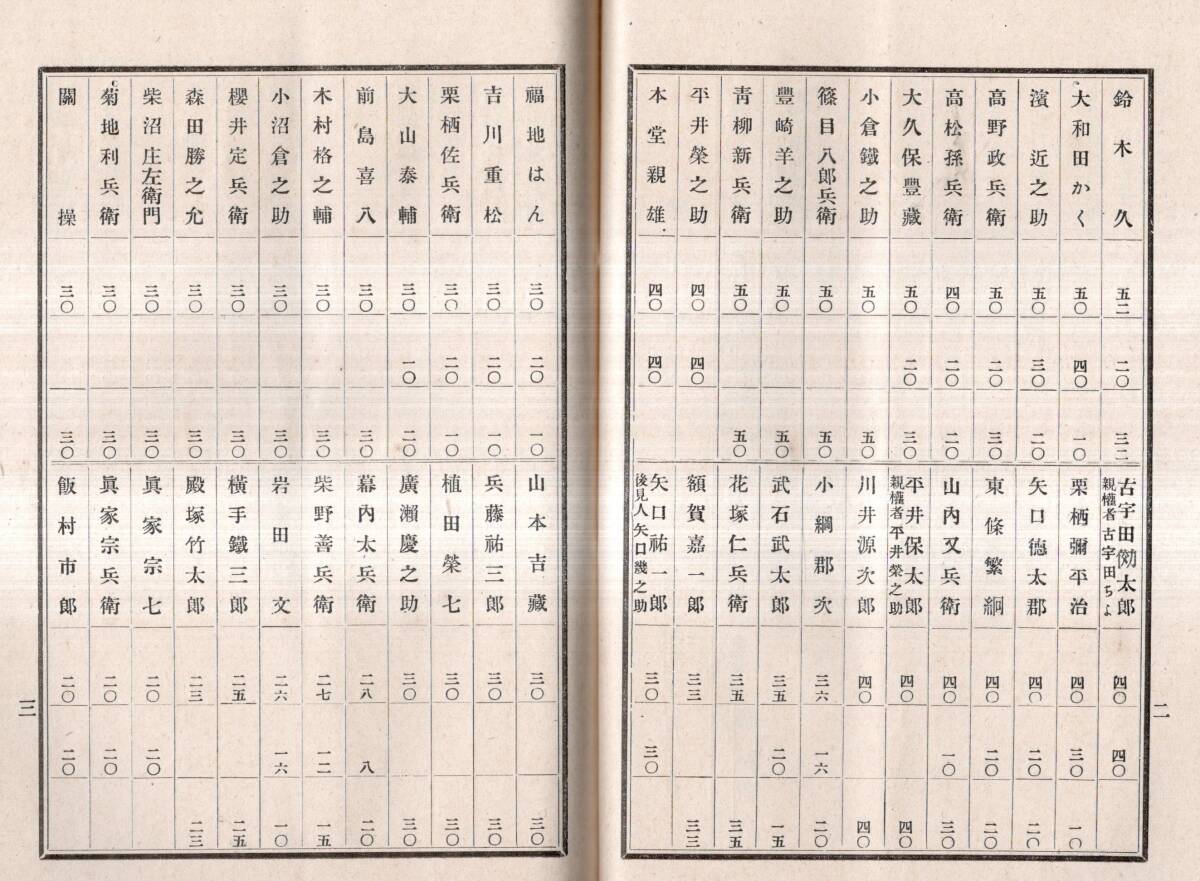 鈴木久 五二 二〇 三二
大和田かく 五〇 四〇 一〇
濱近之助 五〇 三〇 二〇
高野政兵衛 五〇 二〇 三〇
高松孫兵衛 四〇 二〇 二〇
大久保豐藏 五〇 二〇 三〇
小倉鐵之助 五〇 五〇
篠目八郎兵衛 五〇 五〇
豐崎羊之助 五〇 五〇
青柳新兵衛 五〇 五〇
平井榮之助 四〇 四〇
本堂親雄 四〇 四〇
古宇田 太郎 四〇 四〇
親權者 古宇田ちよ
栗栖彌平治 四〇 三〇 一〇
矢口德太郡 四〇 二〇 二〇
東條繁絅 四〇 二〇 二〇
山內又兵衛 四〇 一〇 三〇
平井保太郎 四〇 四〇
親權者 平井榮之助
川井源次郎 四〇 四〇
小綱郡次 三六 一六 二〇
武石武太郎 三五 二〇 一五
花塚仁兵衛 三五 三五
額賀嘉一郎 三三 三三
矢口祐一郎 三〇 三〇
後見人 矢口幾之助
二
福地はん 三〇 二〇 一〇
吉川重松 三〇 二〇 一〇
栗栖佐兵衛 三〇 二〇 一〇
大山泰輔 三〇 一〇 二〇
前島喜八 三〇 三〇
木村格之輔 三〇 三〇
小沼倉之助 三〇 三〇
櫻井定兵衛 三〇 三〇
森田勝之允 三〇 三〇
柴沼庄左衛門 三〇 三〇
菊地利兵衛 三〇 三〇
關操 三〇 三〇
山本吉藏 三〇 三〇
兵藤祐三郎 三〇 三〇
植田榮七 三〇 三〇
廣瀨慶之助 三〇 三〇
幕內太兵衛 二八 八 二〇
柴野善兵衛 二七 一二 一五
岩田文 二六 一六 一〇
橫手鐵三郎 二五 二五
殿塚竹太郎 二三 二三
眞家宗七 二〇 二〇
眞家宗兵衛 二〇 二〇
飯村市郎 二〇 二〇
三